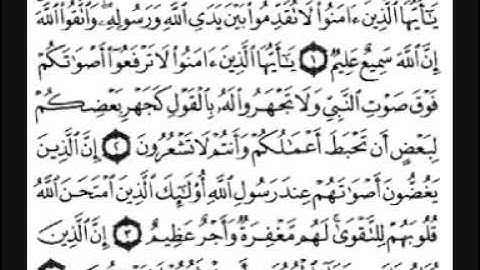 يَٰٓأَيُّهَا ٱلَّذِينَ ءَامَنُوا۟ لَا تُقَدِّمُوا۟ بَيْنَ يَدَىِ ٱللَّهِ وَرَسُولِهِۦ ۖ وَٱتَّقُوا۟ ٱللَّهَ
إِنَّ ٱللَّهَ سَمِيعٌ عَلِيمٌ ١ يَٰٓأَيُّهَا ٱلَّذِينَ ءَامَنُوا۟ لَا تَرْفَعُوٓا۟ أَصْوَٰتَكُمْ
فَوْقَ صَوْتِ ٱلنَّبِىِّ وَلَا تَجْهَرُوا۟ لَهُۥ بِٱلْقَوْلِ كَجَهْرِ بَعْضِكُمْ
لِبَعْضٍ أَن تَحْبَطَ أَعْمَٰلُكُمْ وَأَنتُمْ لَا تَشْعُرُونَ ٢ إِنَّ ٱلَّذِينَ
يَغُضُّونَ أَصْوَٰتَهُمْ عِندَ رَسُولِ ٱللَّهِ أُو۟لَٰٓئِكَ ٱلَّذِينَ ٱمْتَحَنَ ٱللَّهُ
قُلُوبَهُمْ لِلتَّقْوَىٰ ۚ لَهُم مَّغْفِرَةٌ وَأَجْرٌ عَظِيمٌ ٣ إِنَّ ٱلَّذِينَ